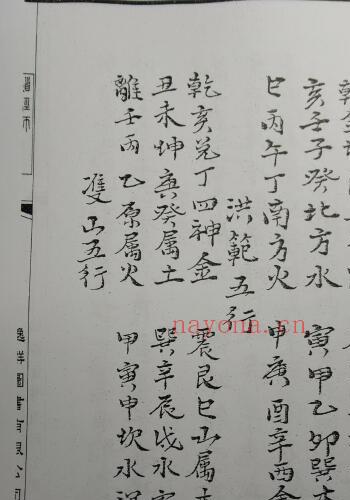 亥壬子癸北方水 寅甲乙卯巽
巳丙午丁南方火 申庚酉辛西金
洪範五行
乾亥兌丁四神金 震艮巳山属
丑未坤庚癸属土 巽辛辰戌水
離壬丙乙原属火 甲寅申坎水
雙山五行
逸群圖書有限公司
nayona.cn